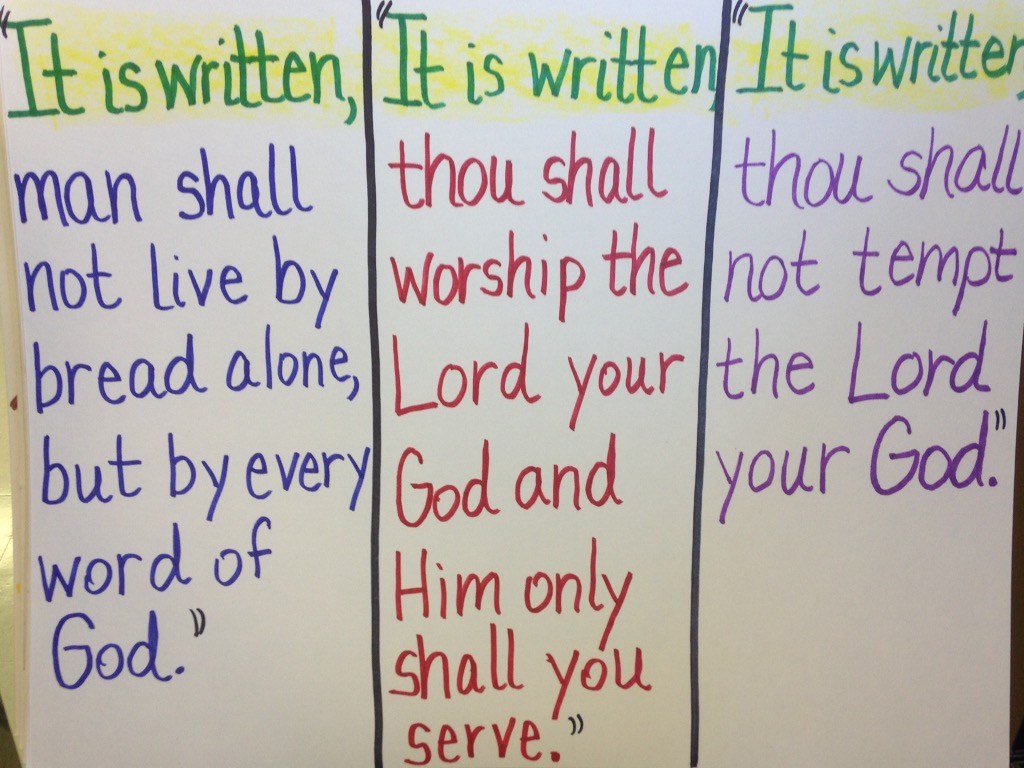 "It is written,
man shall
not live by
bread alone,
but by every
word of
God."
"It is written,
thou shall
worship the
Lord your
God and
Him only
shall you
serve."
"It is written,
thou shall
not tempt
the Lord
your God."